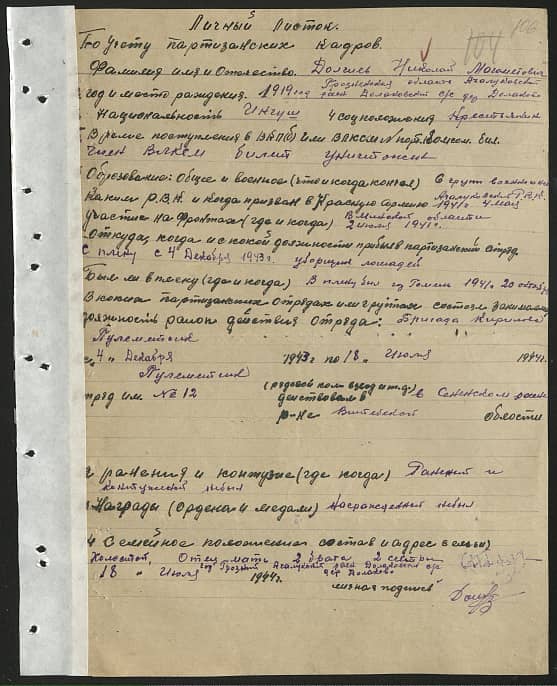 Личный Листок.
106
По учету партизанских кадров.
104
Фамилия имя и Отчество. Долгиев Николай Магометович
Грозненская область Ачалукский
год и место рождения. 1919 год район Долаковский с/с дер Долаково
Национальность Ингуш 4 соцположения Крестьянин
Время поступления в ВКП(б) или ВЛКСМ N парт. комсом. бил.
член ВЛКСМ билет уничтожен
Образование: Общее и военное (что и когда кончал) 6 групп
Каким Р.В.К. и когда призван в Красную армию Ачалукский Р.В.К. 1941 г. 4 мая
участие на фронтах (где и когда) В Минской области
2 июля 1941 г.
Откуда, когда и с какой должности прибыл в партизанский отряд.
с плену с 4 Декабря 1943 г. уборщик лошадей
Был ли в плену (где и когда) В плену был 1941 20
В каких партизанских отрядах или группах состоял занимаемая
должность район действия отряда: Бригада Кирилова
Пулеметчик
с 4 " Декабря 1943 г. по 18 " Июля 1944 г.
Пулеметчик
(рядовой ком взвод и т.д.)
отряд им. № 12 действовал в в Сенненском
р-не Витебской области
ранения и контузие (где когда) Ранений и
контузией небыл
Награды (Ордена и медали) Награжденный небыл
4 Семейное положение состав и адрес семьи)
Холостой, Отец мать 2 брата 2 сестры
Ачалукский район Долаковский с/с
дер Долаково
18 " Июля 1944 г.
личная подпись